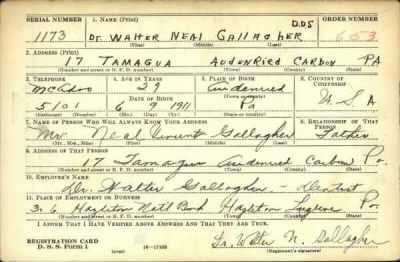 SERIAL NUMBER 1. NAME (Print) D.D.S ORDER NUMBER
1173 Dr. WALTER NEAL GALLAGHER 653
(First) (Middle) (Last)
2. ADDRESS (Print)
17 TAMAGUA AUDENRIED CARBON PA
(Number and street or R. F. D. number) (Town) (County) (State)
3. TELEPHONE 4. AGE IN YEARS 5. PLACE OF BIRTH 6. COUNTRY OF CITIZENSHIP
McAdoo 29 Audenried
DATE OF BIRTH
5101 6 9 1911 Pa U. S. A
(Exchange) (Number) (Mo.) (Day) (Yr.) (State or country)
7. NAME OF PERSON WHO WILL ALWAYS KNOW YOUR ADDRESS 8. RELATIONSHIP OF THAT PERSON
Mr Neal Vincent Gallagher Father
(Mr., Mrs., Miss) (First) (Middle) (Last)
9. ADDRESS OF THAT PERSON
17 Tamagua Audenried Carbon Pa.
(Number and street or R. F. D. number) (Town) (County) (State)
10. EMPLOYER'S NAME
Dr. Walter Gallagher - Dentist
11. PLACE OF EMPLOYMENT OR BUSINESS
306 Hazleton Natl Bank Hazleton Luzerne Pa.
(Number and street or R. F. D. number) (Town) (County) (State)
I AFFIRM THAT I HAVE VERIFIED ABOVE ANSWERS AND THAT THEY ARE TRUE.
REGISTRATION CARD
D. S. S. Form 1 (over) 16-17105 Dr. Walter N. Gallagher
(Registrant's signature)